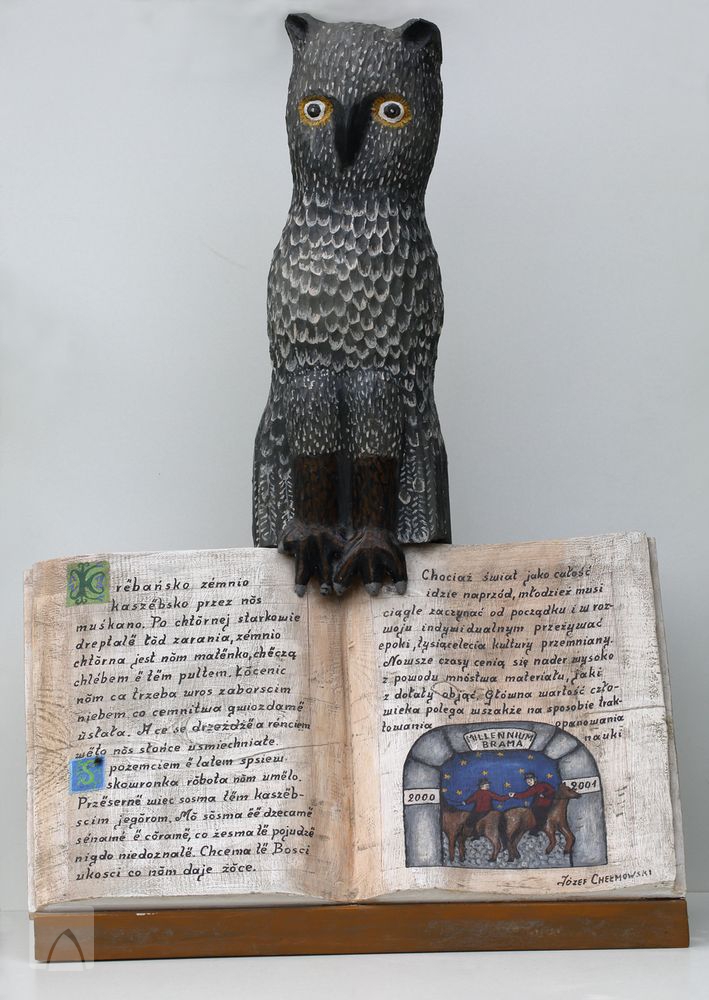 Krëbańsko zémnio
kaszëbsko przez nôs
muśkano. Po chtôrnej starkowie
dreptalë łôd zarania, zémnio
chtôrna jest nôm malënko, chëczą
chlébem ë tém pultem. Łôcenic
nôm ca trzeba wros zaborscim
niebem co cemnitwa gwiozdamë
ùstata. A ce se drzéżdżë a rénciem
wëło nôs słońce ùsmiechniałe.
Spozemciem ë latem spsiew
skowronka rôbota nôm umëlo.
Przësernë wiec sosma tëm kaszëb-
scim jegôrom. Mô sôsma ëë dzecamë
sënamë ë côramë, co żesma të pojudzë
nigdo niedoznalë. Chcema të Bosci
ukosci co nôm daje żôce.
Chociaż świat jako całość
idzie naprzód, młodzież musi
ciągle zaczynać od początku i w roz-
woju indywidualnym przeżywać
epoki, tysiąclecia kultury przemiany.
Nowsze czasy cenią się nader wysoko
z powodu mnóstwa materiału, jaki
z dołały objąć. Główna wartość czło-
wieka polega wszakże na sposobie trak-
towania opanowania
nauki
MILLENNIUM
BRAMA
2000 2001
JÓZEF CHEŁMOWSKI